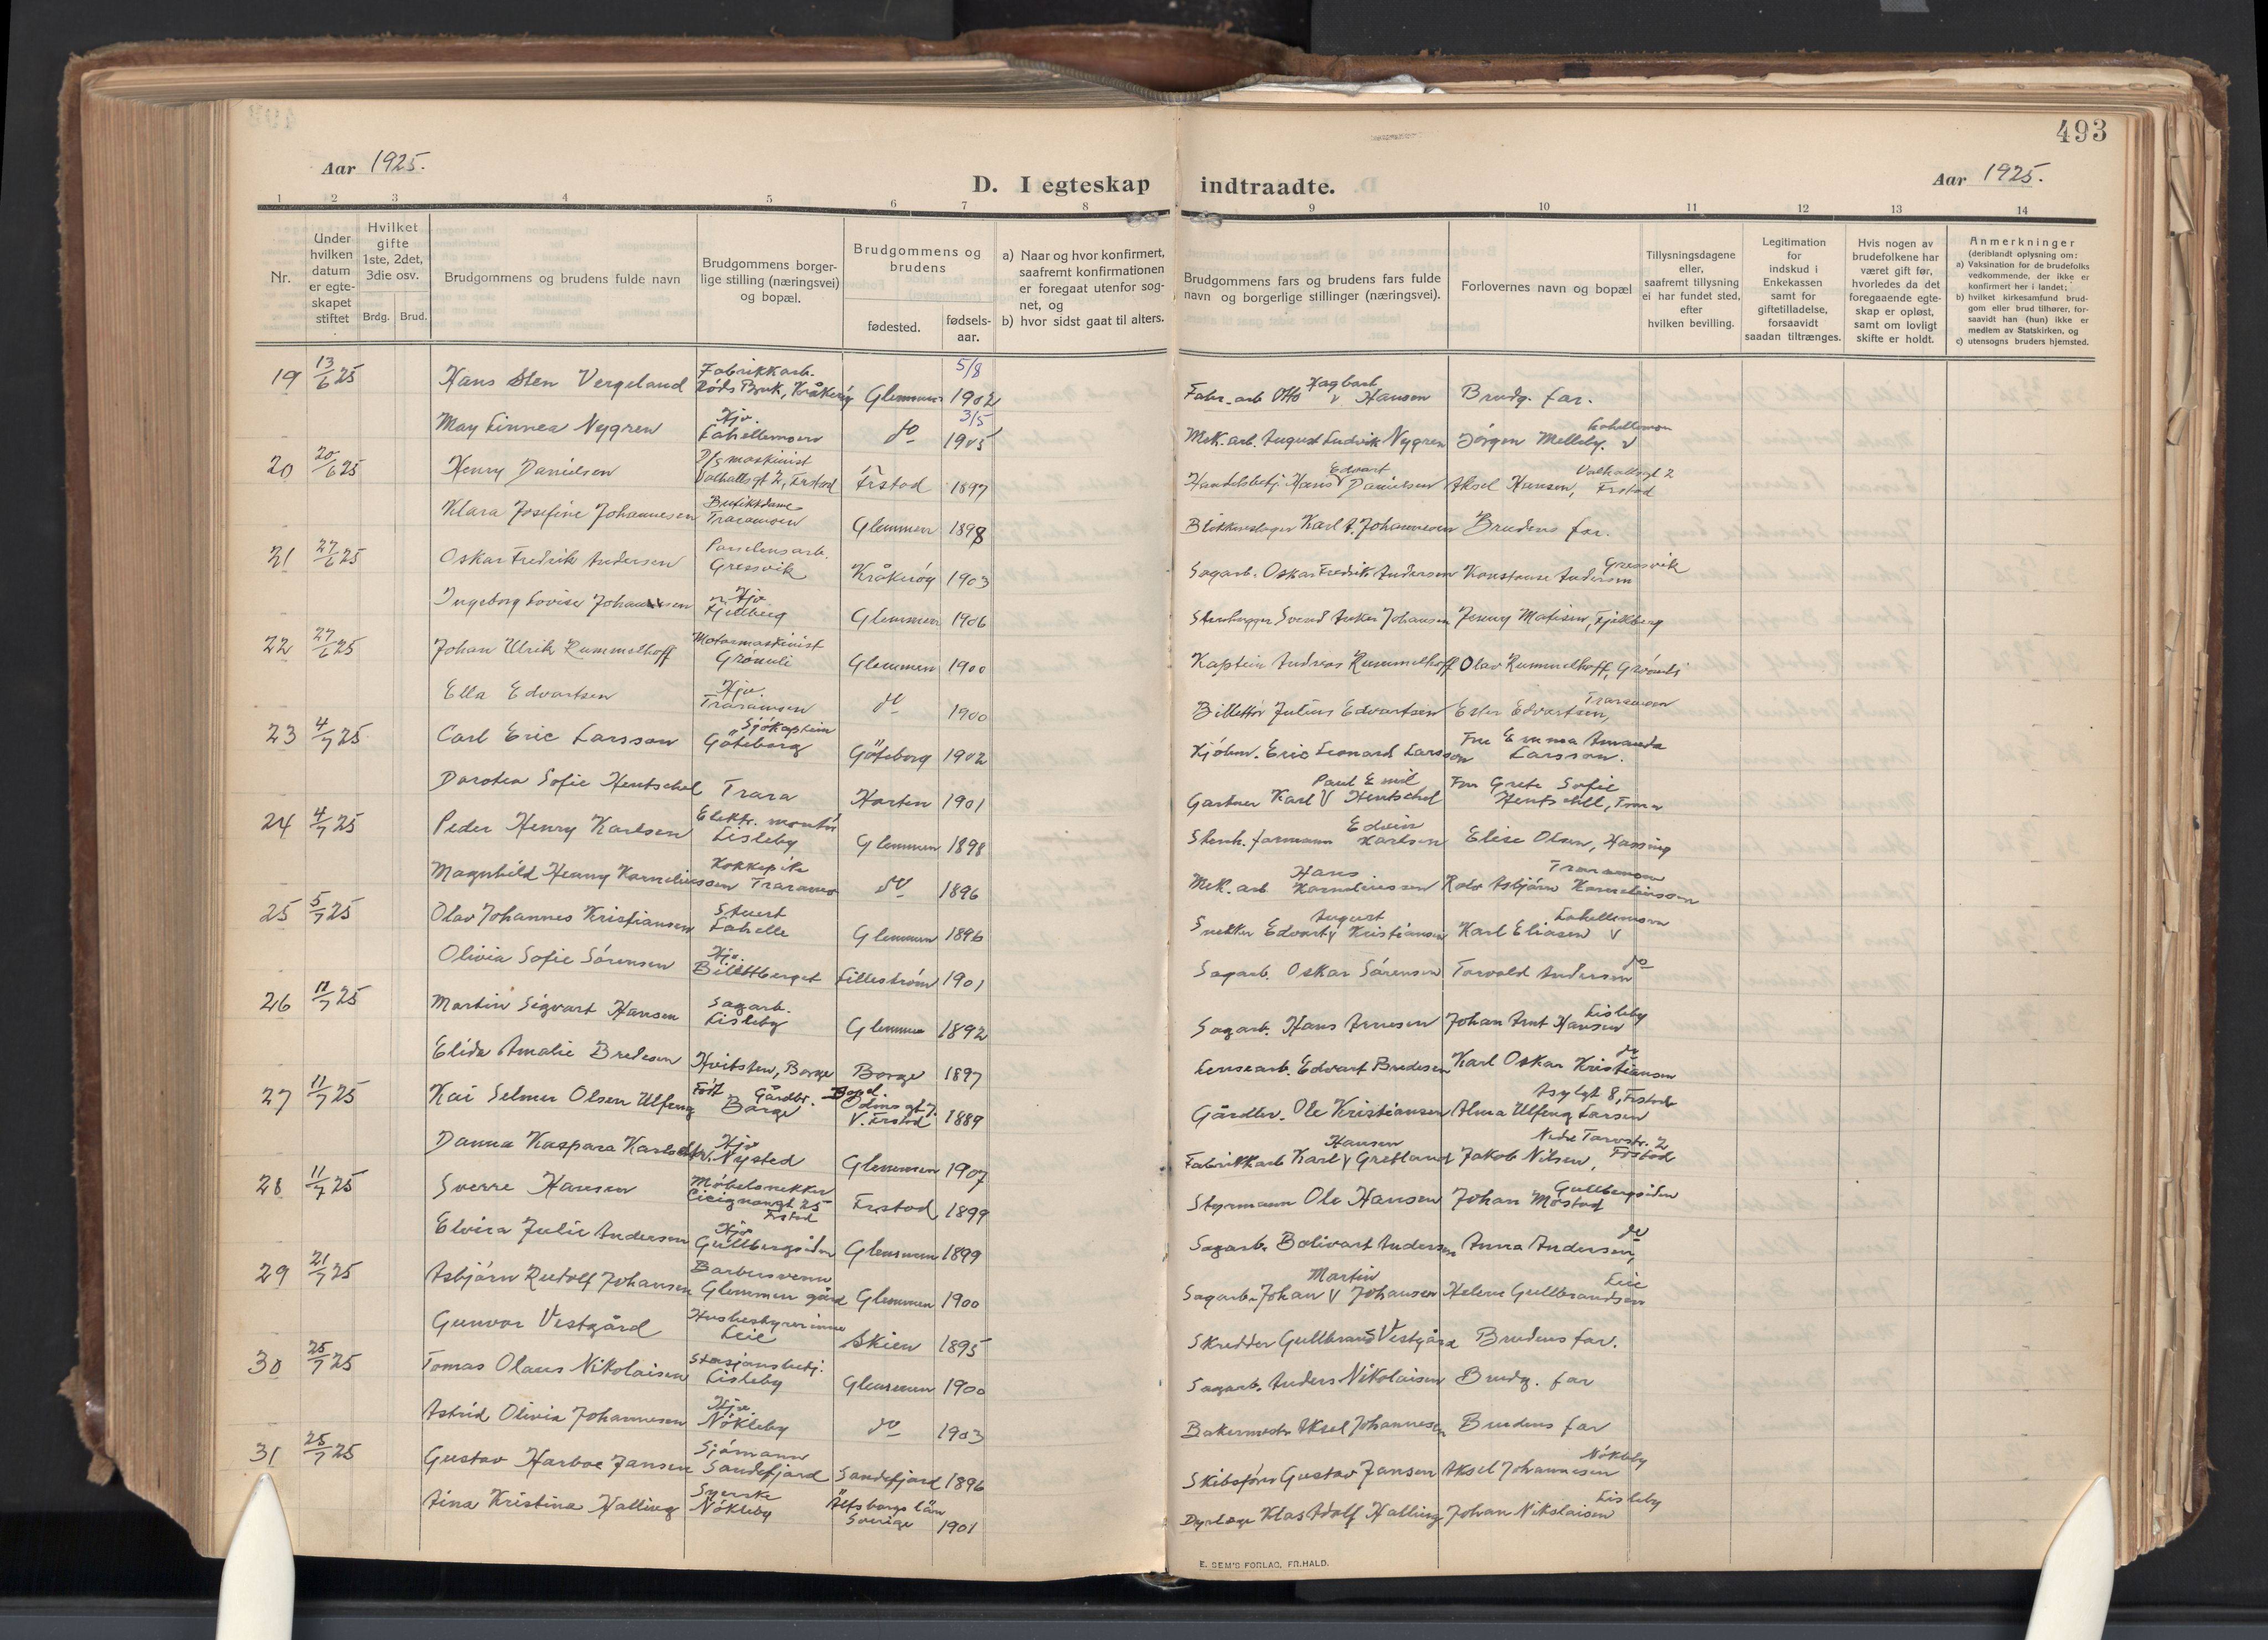 493
Aar 1925.
D. I egteskap indtraadte.
Aar 1925.
1 2 3 4 5 6 7 8 9 10 11 12 13 14
Nr.
Under hvilken datum er egte-skapet stiftet
Hvilket gifte 1ste, 2det, 3die osv.
Brdg. Brud.
Brudgommens og brudens fulde navn
Brudgommens borger-lige stilling (næringsvei) og bopæl.
Brudgommens og brudens
fødested. fødsels-aar.
a) Naar og hvor konfirmert, saafremt konfirmationen er foregaat utenfor sog-net, og
b) hvor sidst gaat til alters.
Brudgommens fars og brudens fars fulde navn og borgerlige stillinger (næringsvei).
Forlovernes navn og bopæl
Tillysningsdagene eller, saafremt tillysning ei har fundet sted, efter hvilken bevilling.
Legitimation for indskud i Enkekassen samt for giftetilladelse, forsaavidt saadan tiltrænges.
Hvis nogen av brudefolkene har været gift før, hvorledes da det foregaaende egte-skap er opløst, samt om lovligt skifte er holdt.
Anmerkninger
(deriblandt oplysning om:
a) Vaksination for de brudefolks vedkommende, der ikke er konfirmert her i landet;
b) hvilket kirkesamfund brud-gom eller brud tilhører, for-saavidt han (hun) ikke er medlem av Statskirken, og
c) utensogns bruders hjemsted.
19 13/6 25 Hans Sten Vergeland Fabrikkarb. Røds Bruk, Kråkerøy Glemmen 5/8 1902 Fabr. arb Otto Hagbart Hansen Brudg. far.
May Linnea Nygren Hjv. Lahellemoen do 3/5 1905 Mek. arb. August Ludvik Nygren Jørgen Melleby. Lahellemoen
20 20/6 25 Henry Danielsen D/s maskinist Valhallsgt 2, Frstad Frstad 1897 Handelsbetj. Hans Edvart Danielsen Aksel Hansen, Valhallsgt 2 Frstad
Klara Josefine Johannesen Butikkdame Traramoen Glemmen 1898 Blikkenslager Karl A. Johannesen Brudens far.
21 27/6 25 Oskar Fredrik Andersen Gressvik Kråkerøy 1903 Sagarb. Oskar Fredrik Andersen Konstanse Andersen Gressvik
Ingeborg Lovise Johannesen Hjv Fjellberg Glemmen 1906 Stenhugger Svend Anker Johansen Jenny Matisen, Fjellberg
22 27/6 25 Johan Ulrik Rummelhoff Motormaskinist Grønli Glemmen 1900 Kaptein Andreas Rummelhoff Olav Rummelhoff, Grønli
Ella Edvartsen Hjv. Traramoen do 1900 Billettør Julius Edvartsen Ester Edvartsen, Traramoen
23 4/7 25 Carl Eric Larsson Sjökaptein Göteborg Göteborg 1902 Kjöbm. Eric Leonard Larsson Fru Emma Amanda Larsson.
Dorotea Sofie Hentschel Trara Horten 1901 Gartner Karl Paul Emil Hentschel Fru Grete Sofie Hentschell, Trara
24 4/7 25 Peder Henry Karlsen Elektr. montør Lisleby Glemmen 1898 Stenh. formann Edvin Karlsen Elise Olsen, Hassing
Magnhild Henny Korneliussen Kokkepike Traramoen do 1896 Mek. arb Hans Korneliussen Rolv Asbjørn Korneliussen Traramoen
25 5/7 25 Olav Johannes Kristiansen Stuert Lahelle Glemmen 1896 Snekker Edvart August Kristiansen Karl Eliasen Lahellemoen
Olivia Sofie Sørensen Hjv. Billettberget Lillestrøm 1901 Sagarb. Oskar Sørensen Torvald Andersen do
26 11/7 25 Martin Sigvart Hansen Sagarb. Lisleby Glemmen 1892 Sagarb. Hans Arnesen Johan Arnt Hansen Lisleby
Elida Amalie Bredesen Hvitsten, Borge Borge 1897 Lensearb. Edvart Bredesen Karl Oskar Kristiansen do
27 11/7 25 Kai Selmer Olsen Ulfeng Født Gårdbr. Borge Bopel. V. Frstad 1889 Gårdbr. Ole Kristiansen Alma Ulfeng Larsen Asylgt 8, Frstad
Danna Kaspara Karlsdtr. Hjv Nysted Glemmen 1907 Fabrikkarb Karl Hansen Gretland Jakob Nilsen, Nedre Torvstr. 2 Frstad
28 11/7 25 Sverre Hansen Møbelsnekker Cicignonsgt 25 Frstad Frstad 1899 Styrmann Ole Hansen Johan Mørstad Gullbergsiden
Elvira Julie Andersen Hjv Gullbergsiden Glemmen 1899 Sagarb. Bolivart Andersen Anna Andersen, do
29 21/7 25 Asbjørn Rudolf Johansen Barbersvenn Glemmen gård Glemmen 1900 Sagarb. Johan Martin Johansen Helene Gullbrandsen Leie
Gunvor Vestgård Husbestyrerinne Leie Skien 1895 Skredder Gullbrand Vestgård Brudens far.
30 25/7 25 Tomas Olaus Nikolaisen Stasjonsbetj. Lisleby Glemmen 1900 Sagarb. Anders Nikolaisen Brudg. far
Astrid Olivia Johannesen Hjv. Nøkleby do 1903 Bakermestr Aksel Johannesen Brudens far
31 25/7 25 Gustav Harboe Jansen Sjømann Sandefjord Sandefjord 1896 Skibsfører Gustav Jansen Aksel Johannesen Nøkleby
Aina Kristina Halling Syerske Nøkleby Älfsborgs län Sverige 1901 Klas Adolf Halling Johan Nikolaisen Lisleby
E. SEM'S FORLAG, FR.HALD.